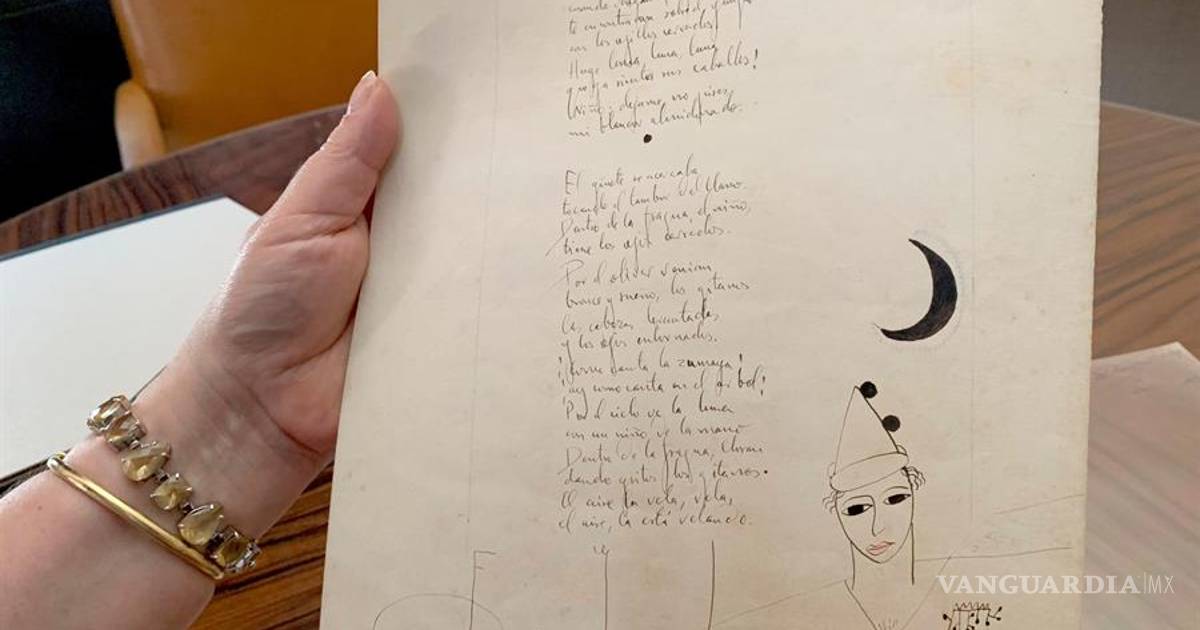 te encontrarán sobre el yunque
con los ojillos cerrados.
Huye luna, luna, luna
que ya siento sus caballos!
Niño, dejame, no pises,
mi blancor almidonado.
El ginete se acercaba
tocando el tambor del llano.
Dentro de la fragua, el niño,
tiene los ojos cerrados.
Por el olivar venian
bronce y sueño, los gitanos
las cabezas levantadas
y los ojos entornados.
¡Como canta la zumaya!
¡ay como canta en el arbol!
Por el cielo va la luna
con un niño de la mano
Dentro de la fragua, lloran
dando gritos, los gitanos.
El aire la vela, vela,
el aire, la está velando.
VANGUARDIA|MX